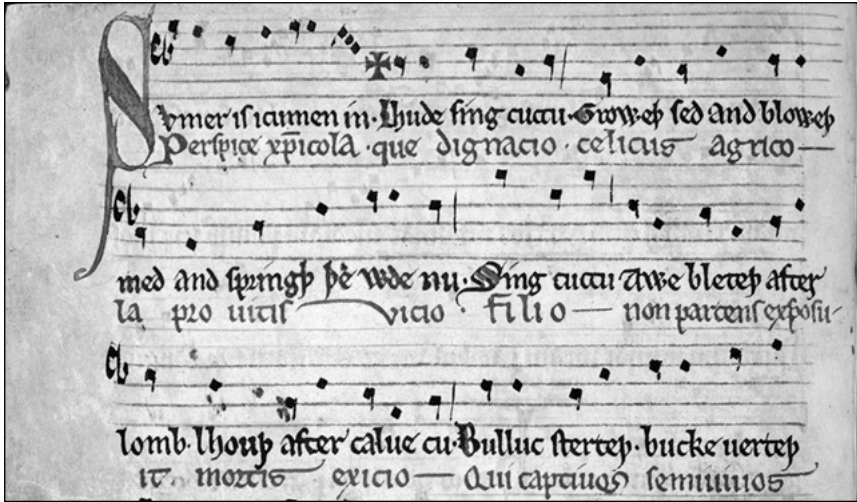 Svmer is icumen in· Lhude sing cuccu· Groweþ sed and bloweþ
Perspice xp̄icola· que dignacio· celicus agrico
med and springþ þe wde nu· Sing cuccu Awe bleteþ after
la pro uitis vicio· filio non parcens exposu
lomb· lhouþ after calue cu· Bulluc sterteþ· bucke uerteþ
it· mortis exicio Qui captiuos semiuiuos